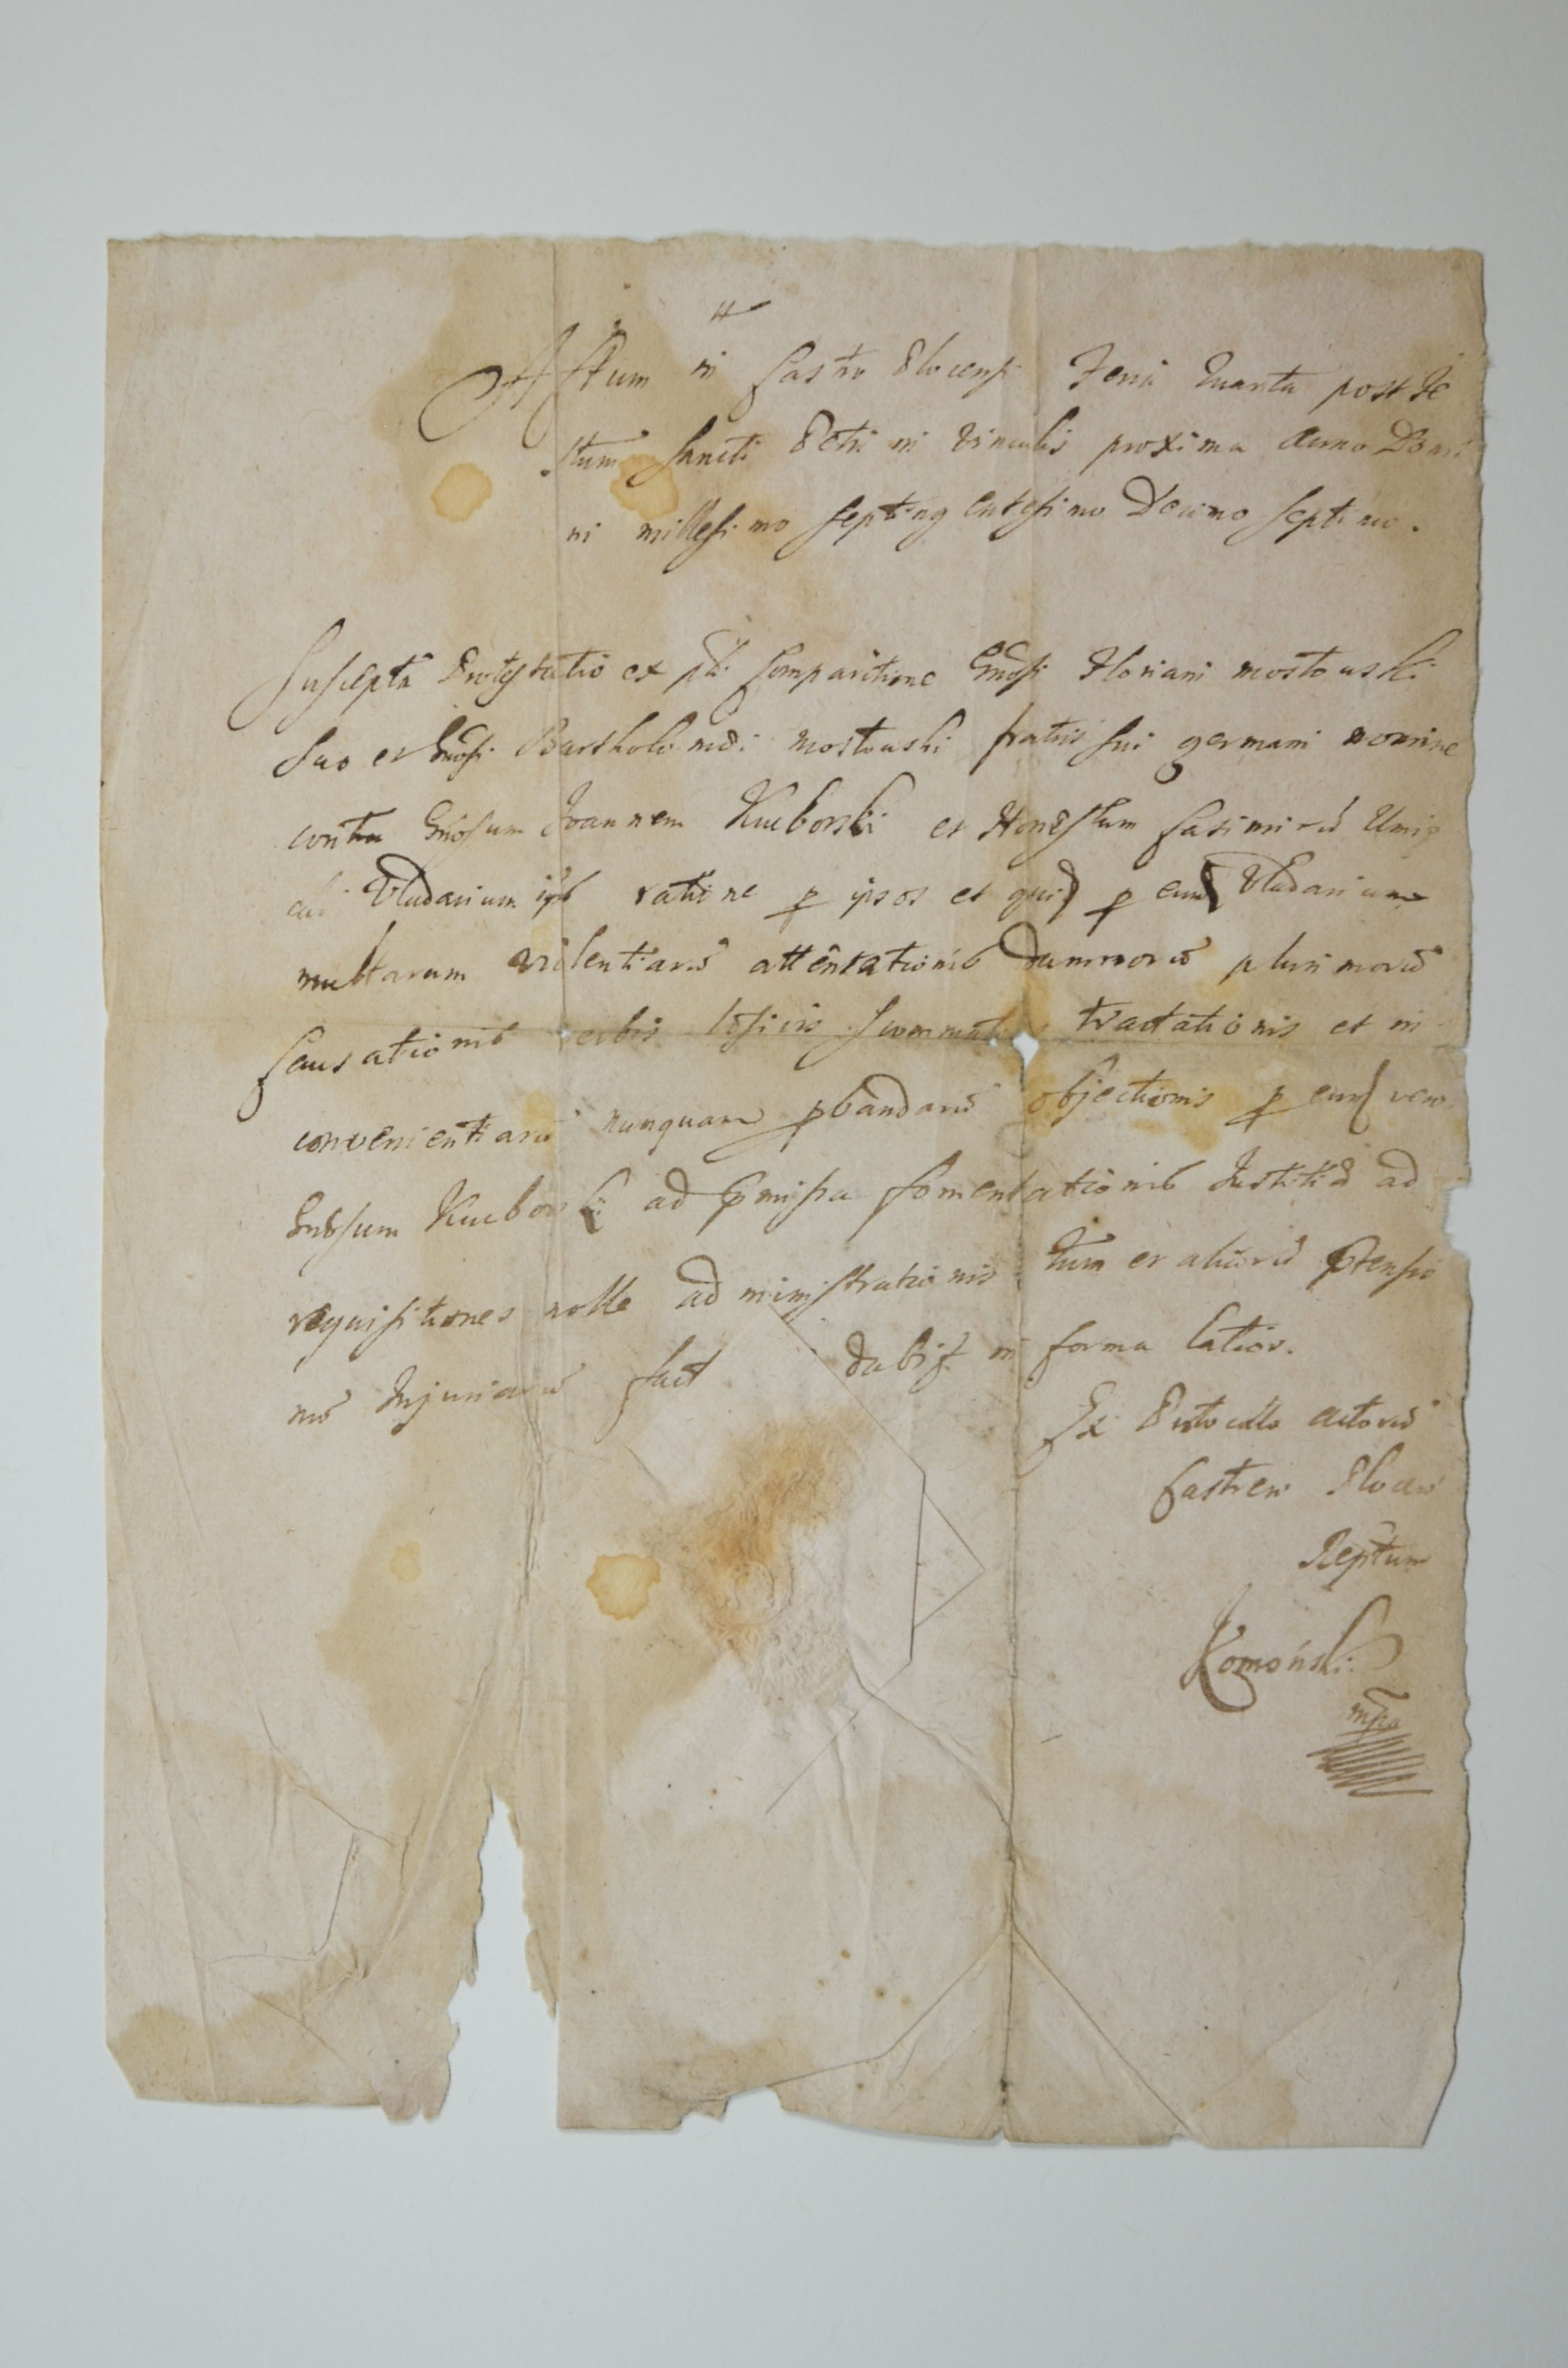 Actum in Castro Plocensi Feria Quarta post Fe
stum Sancti Petri in Vinculis proxima Anno Domi
ni millesimo septingentesimo Decimo septimo.
Suscepta Protestatio ex pti Comparitione Gnosi Floriani Mostowski
suo et Gnosi Bartholomæi Mostowski fratris sui germani nomine
contra Gnosum Joannem Kuborski et Honestum Casimirũ
Vladarium ratione p ipsos et quid p eund Vladarium
multarum violentiarũ attentationis damnorũ plurimorũ
causationis verbis læsivis tractationis et in
convenientiarũ nunquam pbandarũ objectionis p eund vero
Gnosum Kuborski ad præmissa fomentationis Justitiæ ad
requisitiones nolle administrationis tum et aliarũ prætensio
nũ Injuriarũ fact dabit in forma latior.
Ex Protocollo Actorũ
Castren Plocen
Reptum
Komoński
mpa